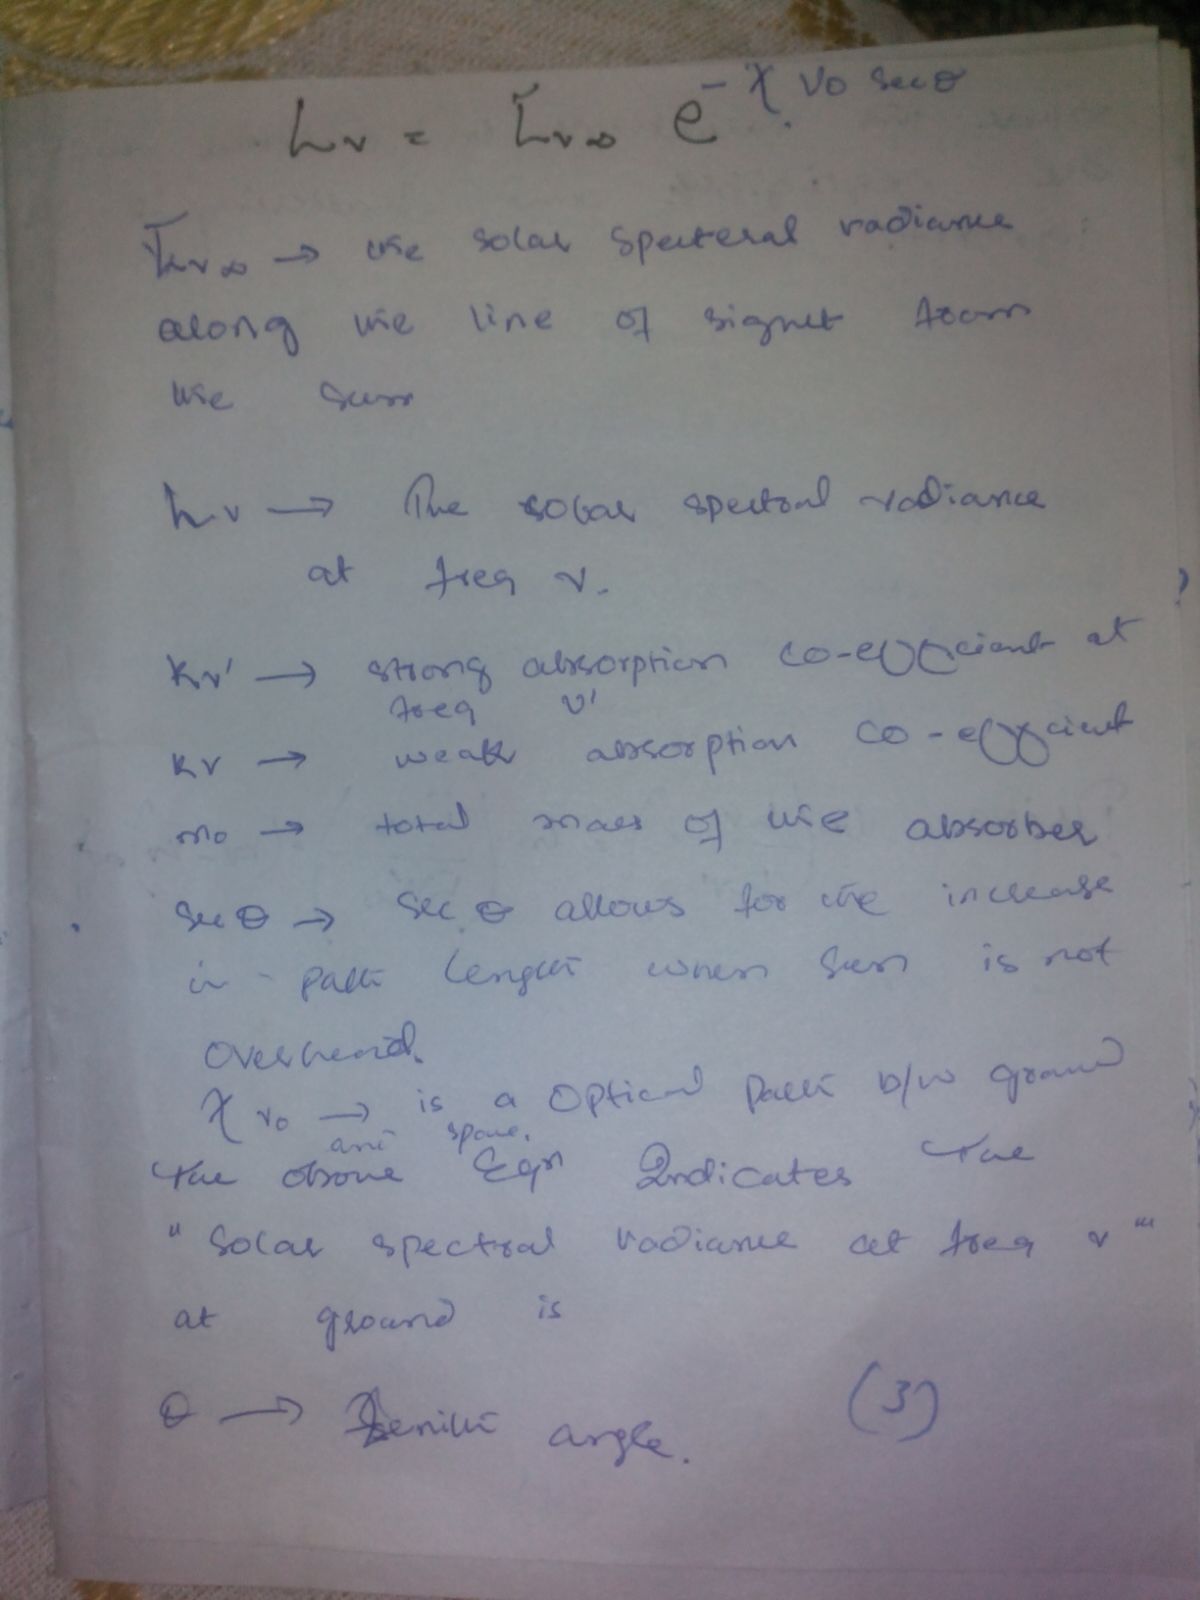 Lν = L̄ν∞ e^-χν0 secθ
L̄ν∞ → the solar specteral radiance
along the line of signet from
the sun
Lν → The solar spectral radiance
at freq ν.
kν' → strong absorption co-efficient at
freq ν'
kν → weak absorption co-efficient
m0 → total mass of the absorber
sec θ → sec θ allows for the increase
in path length when sun is not
overhead.
χν0 → is a optical path b/w ground
and space.
The above Eqn Indicates the
"solar spectral radiance at freq ν"
at ground is
θ → Zenith angle.
(3)